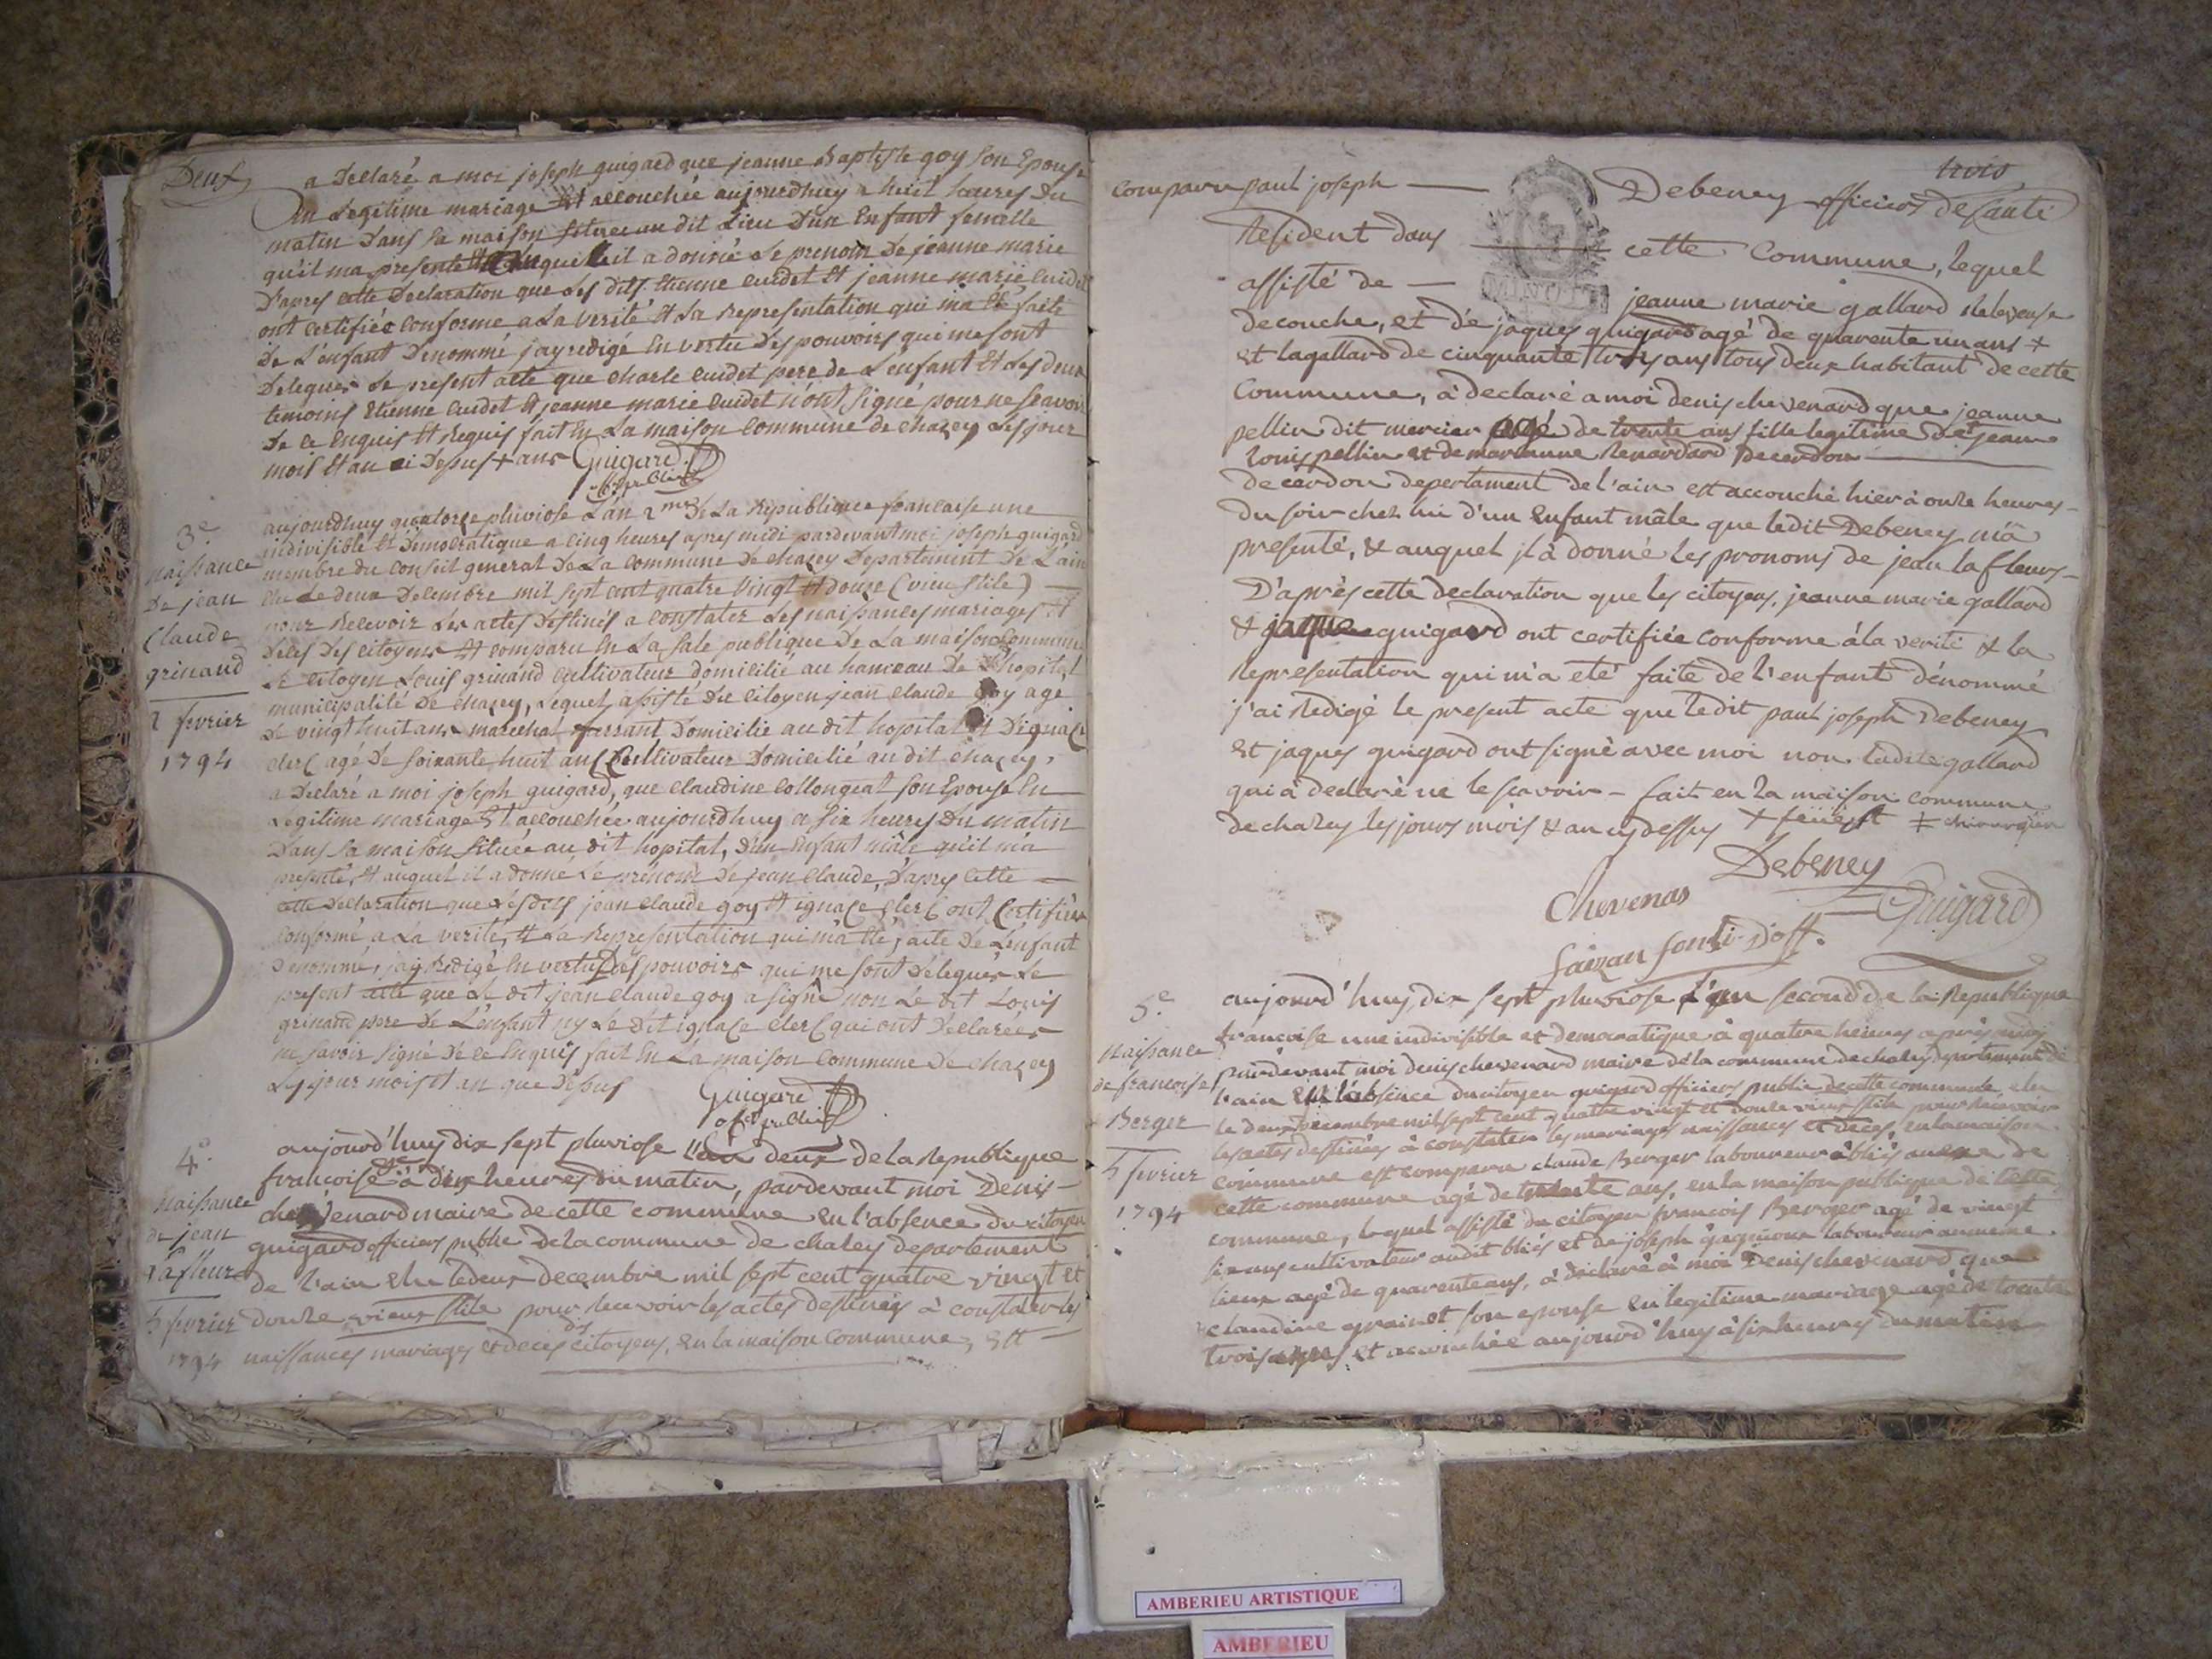 Deux
a Declaré a moi joseph guigard que jeanne Baptiste goy son Epouse
En Legitime mariage Est accouchée aujourdhuy a huit heures du
matin Dans sa maison située au dit Lieu D'un Enfant femelle
qu'il ma presenté auquel il a donné Le prenom De jeanne marie
D'apres cette Declaration que Les dits Etienne cuidet Et jeanne marie cuidet
ont certifiée conforme a La verité Et La Representation qui ma été faite
De L'enfant Denommé j'ay redigé En vertu Des pouvoirs qui me sont
Delegues Le present acte que charle cuidet pere de L'enfant Et Les deux
temoins Etienne cuidet Et jeanne marie cuidet n'ont signé pour ne scavoir
De ce Enquis Et Requis fait En La maison Commune de chazey Les jour
mois Et an ci Dessus + ans Guigard
off public
3e
naissance
De jean
Claude
grinand
2 fevrier
1794
aujourdhuy quatorze pluviose L'an 2me De La Republique francaise une
indivisible Et Democratique a cinq heures apres midi pardevant moi joseph guigard
membre du Conseil general De La Commune De chazey Departement De L'ain
Elu Le deux Decembre mil sept cent quatre Vingt Et douze (vieux stile)
pour Recevoir Les actes Destinés a constater Les naissances mariages Et
Deces Des citoyens Est comparu En La sale publique De La maison Commune
Le citoyen Louis grinand Cultivateur Domicilié au hameau De L'hopital
municipalité De chazey, Lequel assisté du citoyen jean claude goy agé
De vingt huit ans marechal ferrant Domicilié au dit hopital Et D'ignace
clerc agé De soixante huit ans Cultivateur Domicilié au dit chazey,
a Declaré a moi joseph guigard, que claudine Collongeat son Epouse En
Legitime mariage Est accouchée aujourdhuy a six heures du matin
Dans sa maison située au dit hopital, D'un Enfant mâle qu'il ma
presenté, Et auquel il a donné Le prenom De jean claude, D'apres cette
cette Declaration que Lesdits jean claude goy Et ignace clerc ont Certifiée
Conforme a La verité, Et La Representation qui m'a Eté faite De L'enfant
Denommé, j'ay Redigé En vertu Des pouvoirs qui me sont Delegués Le
present acte que Le dit jean claude goy a signé non Le dit Louis
grinand pere De L'enfant ny Le Dit ignace clerc qui ont Declarées
ne savoir signé De ce Enquis fait En La maison Commune De chazey
Les jour mois et an que Dessus Guigard
off public
4e
Naissance
de jean
Lafleur
5 fevrier
1794
aujourd'huy dix sept pluviose l'an deux de la Republique
francoise à dix heures du matin, pardevant moi Denis
chevenard maire de cette commune en l'absence du citoyen
guigard officier public de la commune de chazey departement
de l'ain elu le deux decembre mil sept cent quatre vingt et
douze vieux stile pour recevoir les actes destinés à constater les
naissances mariages et deces des citoyens, en la maison commune, est
trois
comparu paul joseph — Debeney officier de santé
Resident dans cette Commune, lequel
assisté de — jeanne marie gallard Releveuse
de couche, et de jaques guigard agé de quarente un ans +
et la gallard de cinquante trois ans tous deux habitant de cette
Commune, à declaré a moi denis chevenard que jeanne
pellin dit mercier agé de trente ans fille legitime de + jean
louis pellin et de marianne Renardard de cerdon
de cerdon departament de l'ain est accouché hier à onze heures
du soir chez lui d'un enfant mâle que ledit Debeney m'a
presenté, & auquel il à donné les pronoms de jean lafleur
D'après cette declaration que les citoyens, jeanne marie gallard
& jaque guigard ont certifiée conforme à la verité & la
Representation qui m'a eté faite de l'enfant dénommé
j'ai Redigé le present acte que ledit paul joseph Debeney
et jaques guigard ont signé avec moi non ladite gallard
qui à declaré ne le scavoir — fait en la maison commune
de chazey les jours mois & an cy dessus + feu ‡ chirurgien
Debeney
Chevenas Guigard
5e
Naissance
de francoise
Berger
5 fevrier
1794
aujourd'huy dix sept pluviose l'an second de la Republique
francoise une indivisible et democratique à quatre heures après midy
pardevant moi denis chevenard maire de la commune de chazey departement de
l'ain en l'absence du citoyen guigard officier public de cette commune elu
le deux decembre mil sept cent quatre vingt et douze vieux stile pour recevoir
les actes destinés à constater les mariages naissances et deces, en la maison
commune est comparu claude Berger laboureur à bliés annexe de
cette commune agé de trente ans, en la maison publique de cette
commune, lequel assisté du citoyen francois Berger agé de vingt
six ans cultivateur audit bliés et de joseph laboureur au meme
lieux agé de quarente ans, à declaré à moi Denis chevenard que
claudine grainet son epouse en legitime mariage agé de trente
trois ans est accouchée aujourd'huy à six heures du matin
AMBERIEU ARTISTIQUE
AMBERIEU